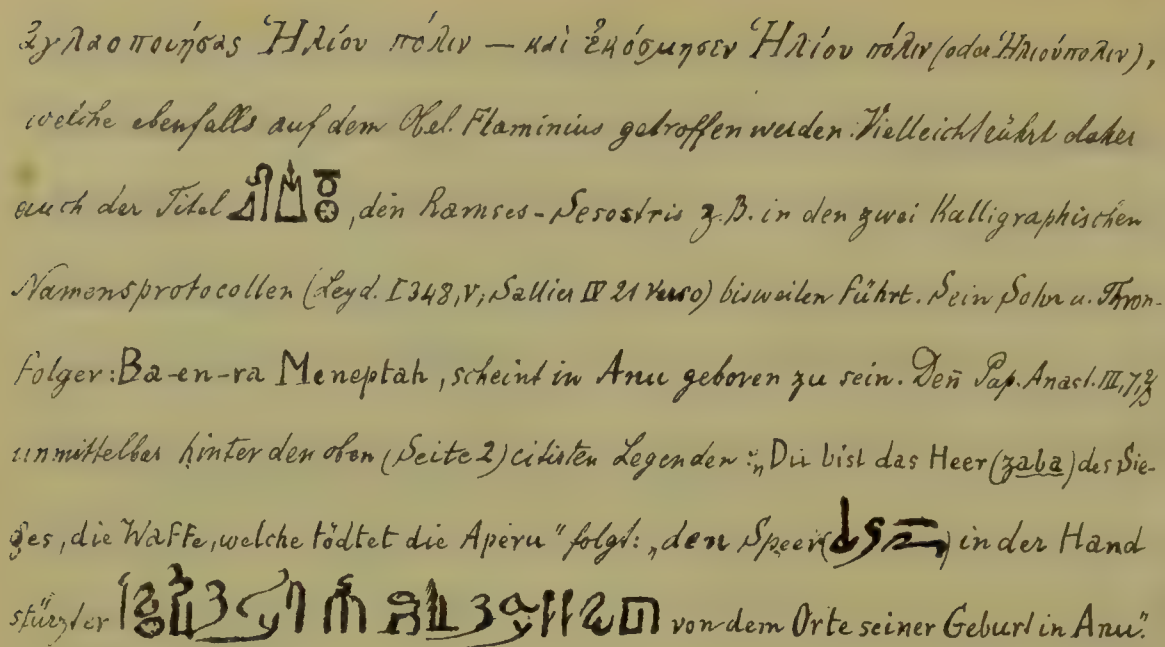 ἀγλαοποιήσας Ἡλίου πόλιν — καὶ ἐκόσμησεν Ἡλίου πόλιν (oder Ἡλιούπολιν),
welche ebenfalls auf dem Obel. Flaminius getroffen werden. Vielleicht rührt daher
auch der Titel , den Ramses-Sesostris z. B. in den zwei Kalligraphischen
Namensprotocollen (Leyd. I 348, V; Sallier IV 21 verso) bisweilen führt. Sein Sohn u. Thron-
folger: Ba-en-ra Meneptah, scheint in Anu geboren zu sein. Deñ Pap. Anast. III, 7,
unmittelbar hinter den oben (Seite 2) citirten Legenden: „Du bist das Heer (zaba) des Sie-
ges, die Waffe, welche tödtet die Aperu“ folgt: „den Speer ( ) in der Hand
stürzt er von dem Orte seiner Geburt in Anu“.